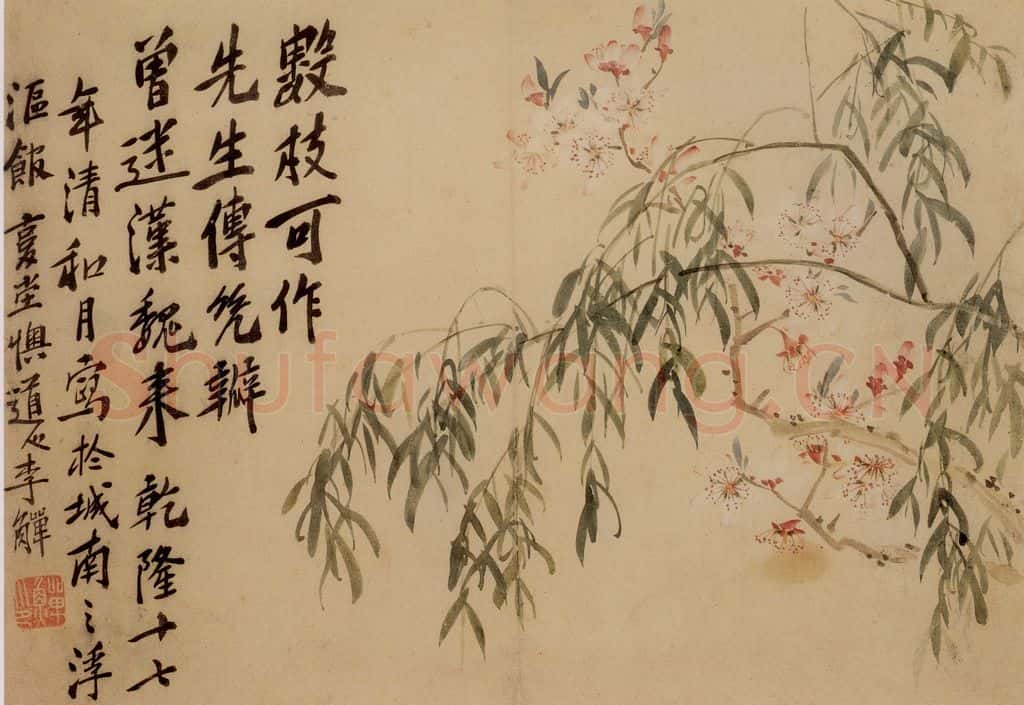 數枝可作
先生傳瓣
曾迷漢魏来 乾隆十七
年清和月寫於城南之浮
漚館 复堂懊道人李鱓
Shufawang.CN